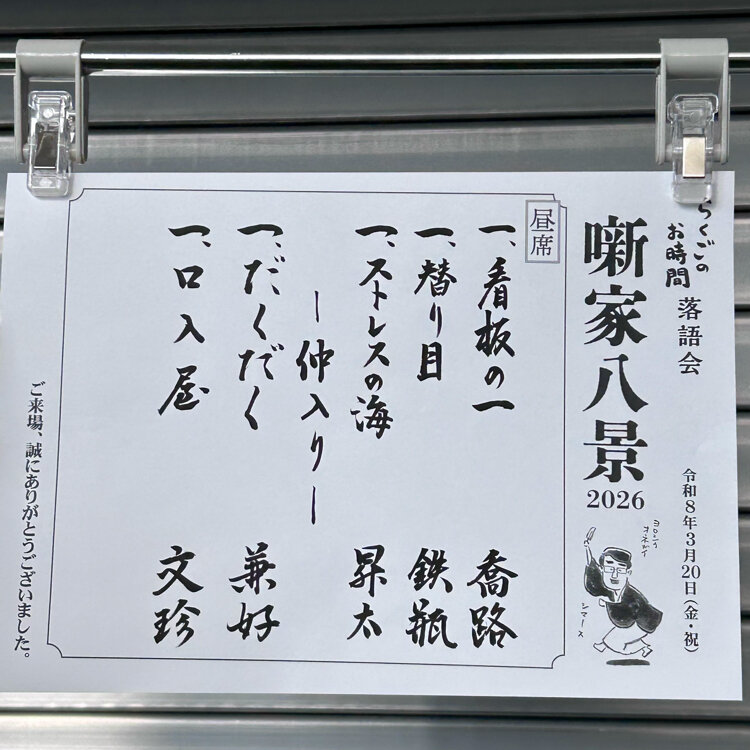 らくごの
お時間
落語会
噺家八景
2026
令和8年3月20日(金・祝)
ヨロシク
オネガイ
シマース
昼席
一、看板の一 喬路
一、替り目 鉄瓶
一、ストレスの海 昇太
ー仲入りー
一、だくだく 兼好
一、口入屋 文珍
ご来場、誠にありがとうございました。